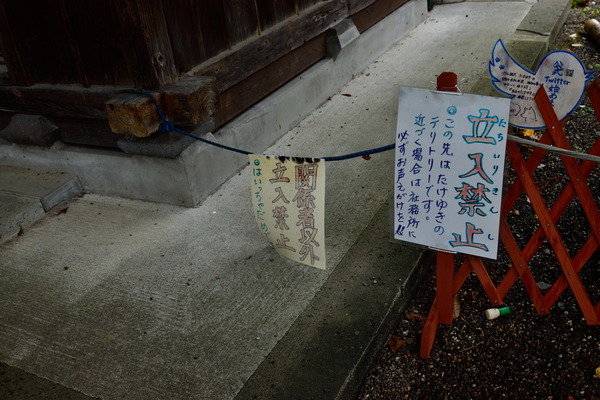 立入禁止
たちいりきんし
この先はたけゆきの
テリトリーです。
近づく場合は社務所に
必ずお声えがけを!!
関係者以外
立入禁止
はいっちゃだめ
Twitter